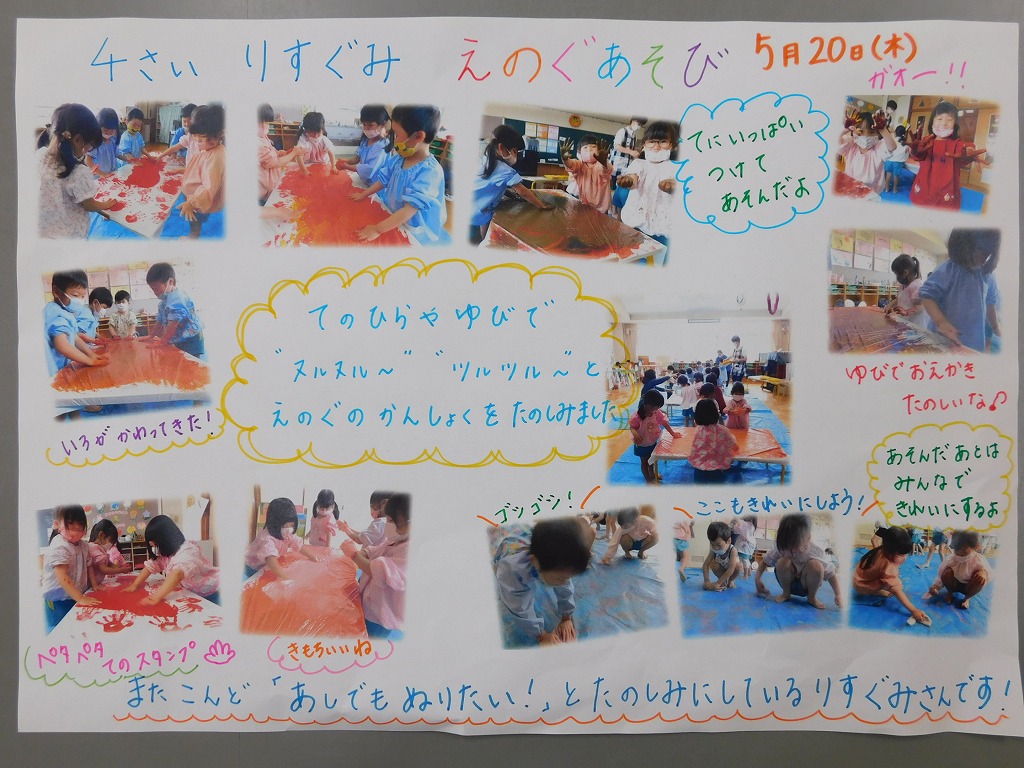 4さい りすぐみ えのぐあそび 5月20日(木)
ガオー!!
てにいっぱい
つけて
あそんだよ
てのひらやゆびで
"ヌルヌル～" "ツルツル～"と
えのぐのかんしょくをたのしみました
いろがかわってきた!
ゆびでおえかき
たのしいな♪
あそんだあとは
みんなで
きれいにするよ
ゴシゴシ!
ここもきれいにしよう!
ペタペタ
てのスタンプ
きもちいいね
またこんど「あしでもぬりたい!」とたのしみにしているりすぐみさんです!